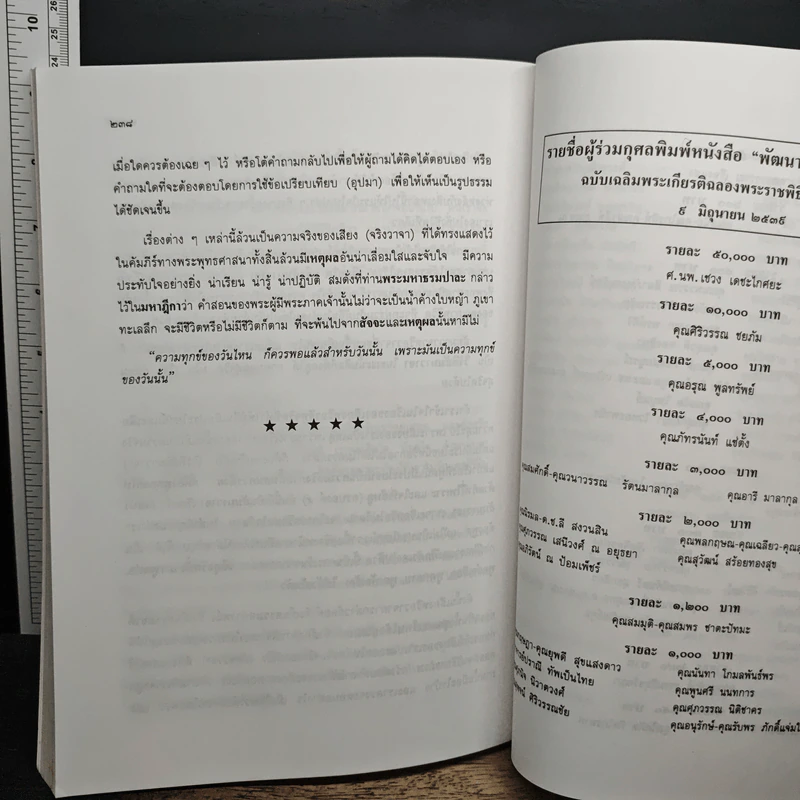 ๒๓๘
เมื่อใดควรต้องเฉย ๆ ไว้ หรือใต้คำถามกลับไปเพื่อให้ผู้ถามได้คิดได้ตอบเอง หรือ
คำถามใดที่จะต้องตอบโดยการใช้ข้อเปรียบเทียบ (อุปมา) เพื่อให้เห็นเป็นรูปธรรม
ได้ชัดเจนขึ้น
เรื่องต่าง ๆ เหล่านี้ล้วนเป็นความจริงของเสียง (จริงวาจา) ที่ได้ทรงแสดงไว้
ในคัมภีร์ทางพระพุทธศาสนาทั้งสิ้นล้วนมีเหตุผลอันน่าเลื่อมใสและจับใจ มีความ
ประทับใจอย่างยิ่ง น่าเรียน น่ารู้ น่าปฏิบัติ สมดั่งที่ท่านพระมหาธรรมปาละ กล่าว
ไว้ในมหาฎีกาว่า คำสอนของพระผู้มีพระภาคเจ้านั้นไม่ว่าจะเป็นน้ำค้างใบหญ้า ภูเขา
ทะเลลึก จะมีชีวิตหรือไม่มีชีวิตก็ตาม ที่จะพ้นไปจากสัจจะและเหตุผลนั้นหามีไม่
“ความทุกข์ของวันไหน ก็ควรพอแล้วสำหรับวันนั้น เพราะมันเป็นความทุกข์
ของวันนั้น”
★ ★ ★ ★ ★
รายชื่อผู้ร่วมกุศลพิมพ์หนังสือ “พัฒนา
ฉบับเฉลิมพระเกียรติฉลองพระราชพิธี
๙ มิถุนายน ๒๕๓๙
รายละ ๕๐,๐๐๐ บาท
ศ.นพ.เชวง เดชะไกศยะ
รายละ ๑๐,๐๐๐ บาท
คุณศิริวรรณ ชยภัม
รายละ ๕,๐๐๐ บาท
คุณอรุณ พูลทรัพย์
รายละ ๔,๐๐๐ บาท
คุณภัทรนันท์ แซ่ตั้ง
รายละ ๓,๐๐๐ บาท
คุณสมศักดิ์-คุณวนาวรรณ รัตนมาลากุล คุณอารี มาลากุล
รายละ ๒,๐๐๐ บาท
ด.ช.ลี สงวนสิน คุณพลกฤษณ-คุณเฉลียว-คุณ
เสนีวงศ์ ณ อยุธยา คุณสุวัฒน์ สร้อยทองสุข
ณ ป้อมเพ็ชร์
รายละ ๑,๒๐๐ บาท
คุณสมมุติ-คุณสมพร ชาตะปัทมะ
รายละ ๑,๐๐๐ บาท
คุณยุพดี สุขแสงดาว คุณนันทา โกมลพันธ์พร
ทัพเป็นไทย คุณพูนศรี นนทการ
นิวาตวงศ์ คุณศุภวรรณ นิติชาคร
ศิริวรรณชัย คุณอนุรักษ์-คุณรับพร ภักดิ์แจ่มใ
10
26
25
24